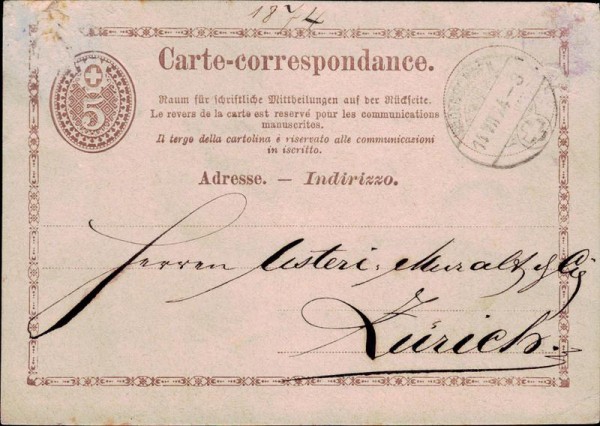 1874
5
Carte-correspondance.
Raum für schriftliche Mittheilungen auf der Rückseite.
Le revers de la carte est reservé pour les communications
manuscrites.
Il tergo della cartolina è riservato alle communicazioni
in iscritto.
Adresse. — Indirizzo.
Herren Usteri-Muralt & Cie
Zürich.